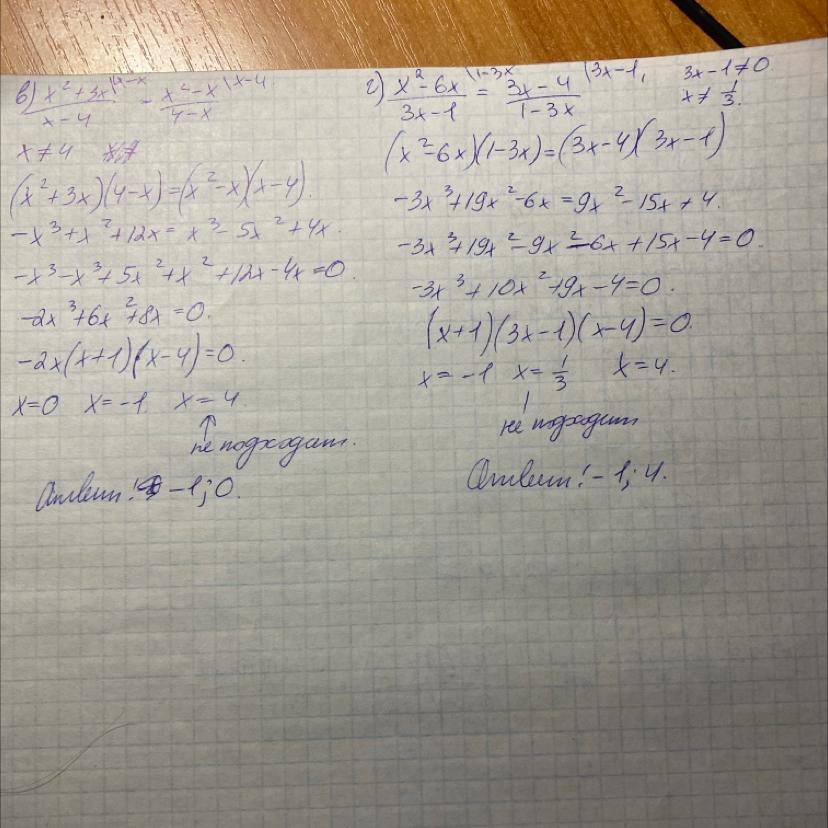 в) x²+3x|4-x / x-4 = x²-x|x-4 / 4-x
x≠4
(x²+3x)(4-x)=(x²-x)(x-4).
-x³+x²+12x=x³-5x²+4x.
-x³-x³+5x²+x²+12x-4x=0.
-2x³+6x²+8x=0.
-2x(x+1)(x-4)=0.
x=0 x=-1 x=4
не подходит.
Ответ: -1; 0.
г) x²-6x|1-3x / 3x-1 = 3x-4|3x-1 / 1-3x, 3x-1≠0
x≠1/3.
(x²-6x)(1-3x)=(3x-4)(3x-1)
-3x³+19x²-6x=9x²-15x+4.
-3x³+19x²-9x²-6x+15x-4=0.
-3x³+10x²+9x-4=0.
(x+1)(3x-1)(x-4)=0.
x=-1 x=1/3 x=4.
не подходит
Ответ: -1; 4.